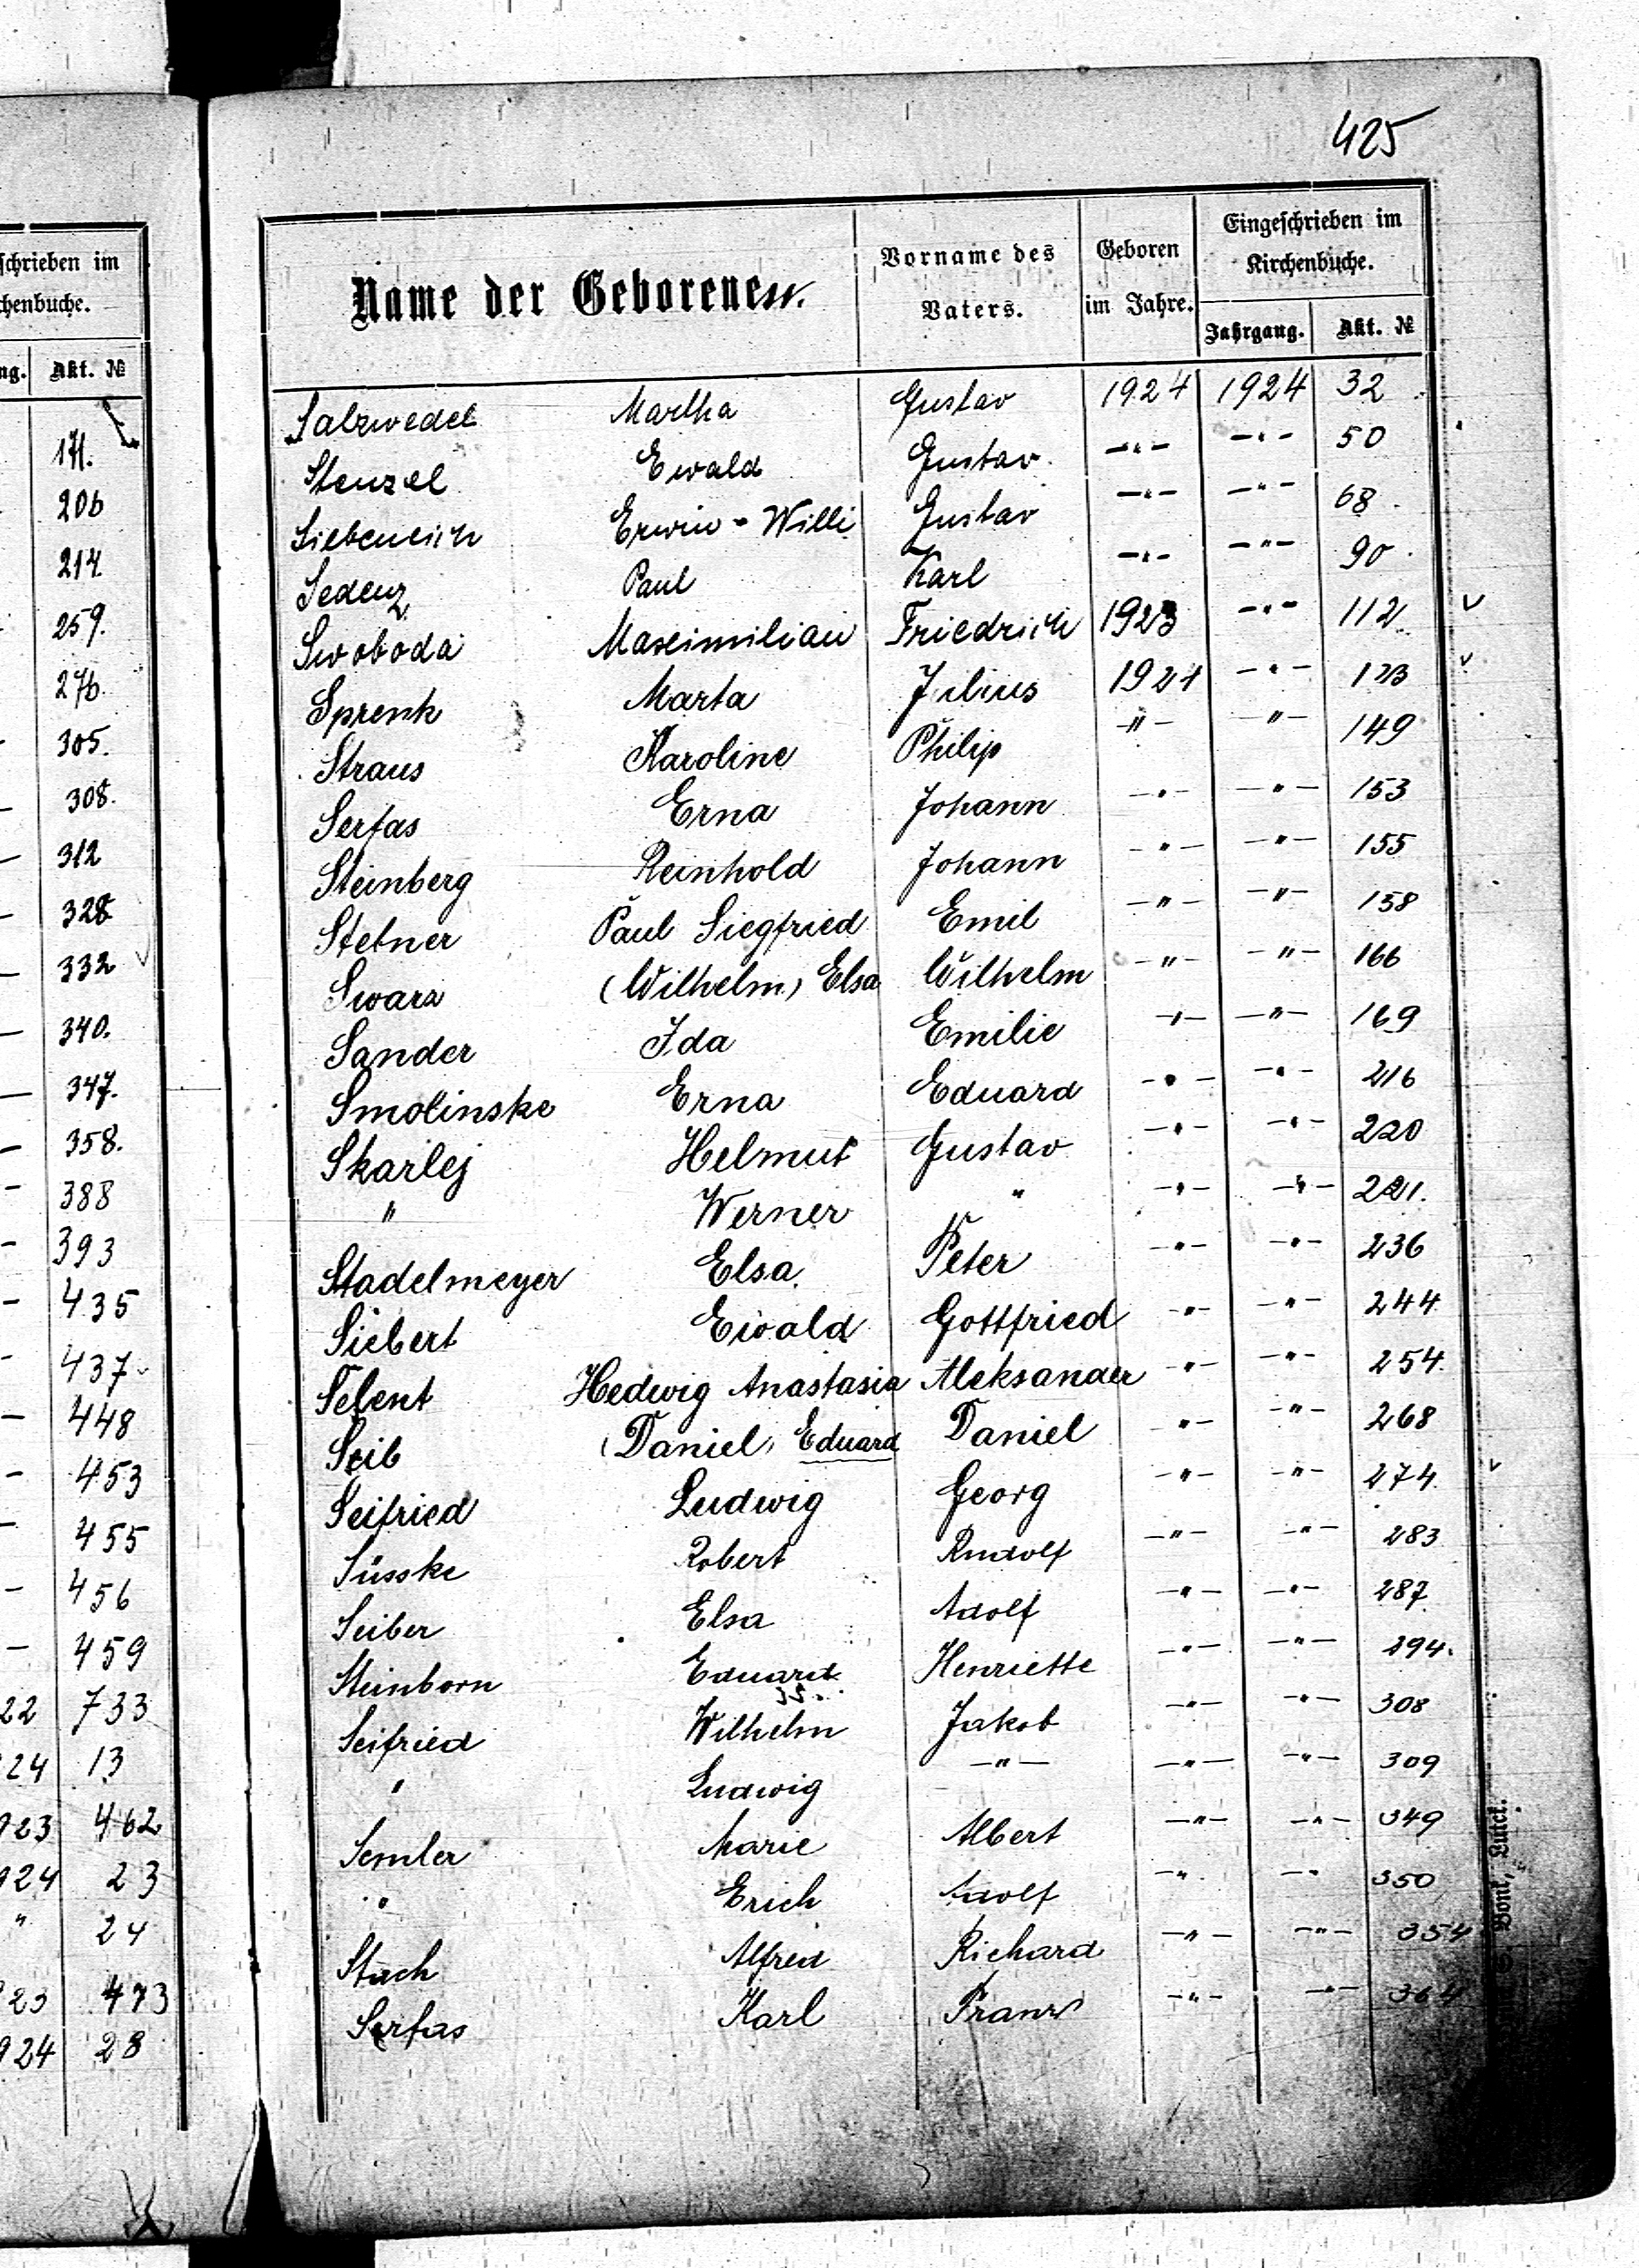 schrieben im
chenbuche.
ng. Akt. №
171.
206
214.
259.
276.
305.
308.
312
328
332 v
340.
347.
358.
388
393
435
437
448
453
455
456
459
22 733
24 13
923 462
924 23
" 24
23 473
924 28
425
Name der Geborenen. Vorname des Vaters. Geboren im Jahre. Eingeschrieben im Kirchenbuche.
Jahrgang. Akt. №
Salzwedel Martha Gustav 1924 1924 32
Stenzel Ewald Gustav -"- -"- 50
Siebeneich Erwin - Willi Gustav -"- -"- 68
Sedenz Paul Karl -"- -"- 90
Swoboda Maximilian Friedrich 1923 -"- 112 v
Sprenk Marta Julius 1924 -"- 123 v
Straus Karoline Philip -"- -"- 149
Serfas Erna Johann -"- -"- 153
Steinberg Reinhold Johann -"- -"- 155
Stebner Paul Siegfried Emil -"- -"- 158
Swarz (Wilhelm) Elsa Wilhelm -"- -"- 166
Sander Ida Emilie -"- -"- 169
Smolinske Erna Eduard -"- -"- 216
Skarlej Helmut Gustav -"- -"- 220
" Werner " -"- -"- 221.
Stadelmeyer Elsa Peter -"- -"- 236
Siebert Ewald Gottfried -"- -"- 244
Selent Hedwig Anastasia Aleksander -"- -"- 254
Seib (Daniel) Eduard Daniel -"- -"- 268
Seifried Ludwig Georg -"- -"- 274 v
Süsske Robert Rudolf -"- -"- 283
Seiber Elsa Adolf -"- -"- 287
Steinborn Eduard Henriette -"- -"- 294.
Seifried Wilhelm Jakob -"- -"- 308
" Ludwig -"- -"- -"- 309
Semler Marie Albert -"- -"- 349
" Erich Adolf -"- -"- 350
Stach Alfred Richard -"- -"- 354
Serfas Karl Franz -"- -"- 364